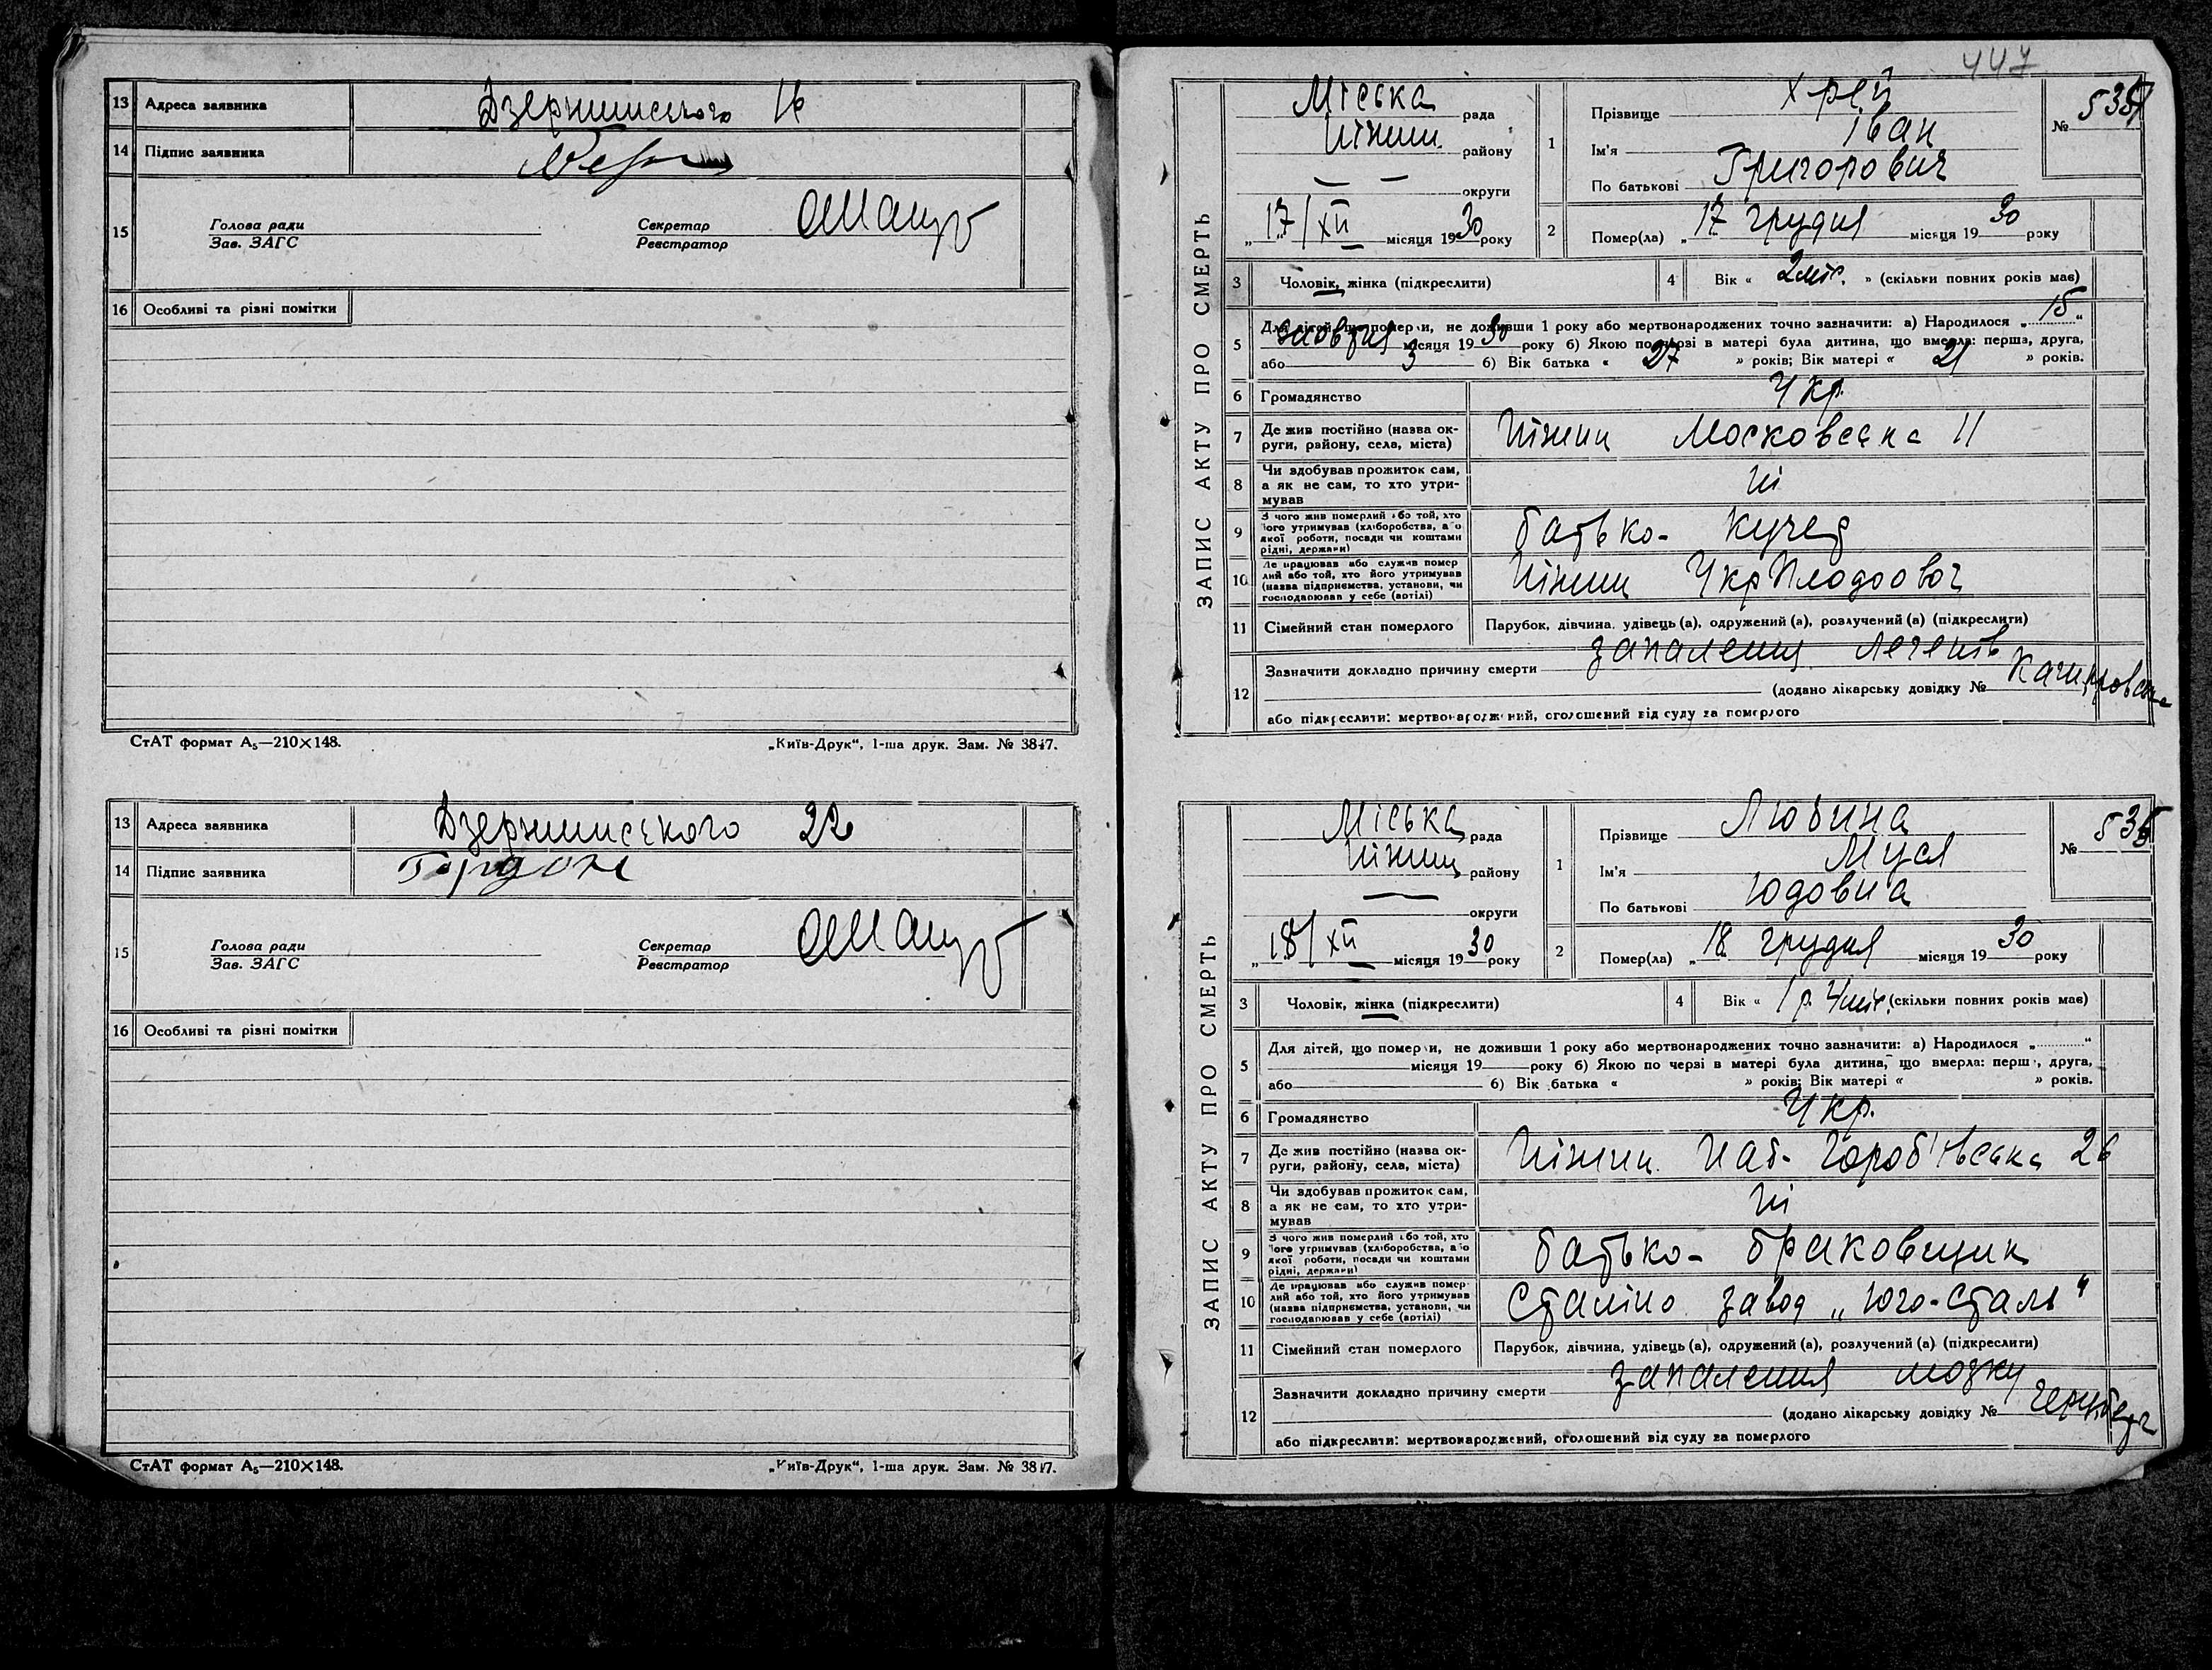 13 Адреса заявника Дзержинського 16
14 Підпис заявника
15 Голова ради Секретар
Зав. ЗАГС Реєстратор
16 Особливі та різні помітки
СтАТ формат А₅—210×148. „Київ-Друк“, 1-ша друк. Зам. № 3847.
13 Адреса заявника Дзержинського 22
14 Підпис заявника Гордон
15 Голова ради Секретар
Зав. ЗАГС Реєстратор
16 Особливі та різні помітки
СтАТ формат А₅—210×148. „Київ-Друк“, 1-ша друк. Зам. № 3847.
447
ЗАПИС АКТУ ПРО СМЕРТЬ
Міська рада
Ніжин. району
— — округи
„17/XII місяця 1930 року
1 Прізвище Хрей
Ім'я Іван
По батькові Григорович
№ 535
2 Помер(ла) „17 грудня місяця 1930 року
3 Чоловік, жінка (підкреслити)
4 Вік « 2 міс. » (скільки повних років має)
5 Для дітей, що померли, не доживши 1 року або мертвонароджених точно зазначити: а) Народилося „15“
жовтня місяця 1930 року б) Якою по черзі в матері була дитина, що вмерла: перша, друга,
або 3 б) Вік батька « 27 » років; Вік матері « 21 » років.
6 Громадянство Укр.
7 Де жив постійно (назва ок-
руги, району, села, міста) Ніжин Московська 11
8 Чи здобував прожиток сам,
а як не сам, то хто утри-
мував Ні
9 З чого жив померлий або той, хто
його утримував (хліборобства, або
якої роботи, посади чи коштами
рідні, держави) батько - кучер
10 Де працював або служив помер
лий або той, хто його утримував
(назва підприємства, установи, чи
господарював у себе (артілі) Ніжин УкрПлодоовоч
11 Сімейний стан померлого Парубок, дівчина, удівець (а), одружений (а), розлучений (а) (підкреслити)
12 Зазначити докладно причину смерти запалення легенів
(додано лікарську довідку №
або підкреслити: мертвонароджений, оголошений від суду за померлого
ЗАПИС АКТУ ПРО СМЕРТЬ
Міська рада
Ніжин району
— округи
„18/XII місяця 1930 року
1 Прізвище Любина
Ім'я Муся
По батькові Юдовна
№ 536
2 Помер(ла) „18 грудня місяця 1930 року
3 Чоловік, жінка (підкреслити)
4 Вік « 1 р. 4 міс. (скільки повних років має)
5 Для дітей, що померли, не доживши 1 року або мертвонароджених точно зазначити: а) Народилося „ “
місяця 19 року б) Якою по черзі в матері була дитина, що вмерла: перша, друга,
або б) Вік батька « » років; Вік матері « » років.
6 Громадянство Укр.
7 Де жив постійно (назва ок-
руги, району, села, міста) Ніжин. Наб- Гороб'ївська 26
8 Чи здобував прожиток сам,
а як не сам, то хто утри-
мував Ні
9 З чого жив померлий або той, хто
його утримував (хліборобства, або
якої роботи, посади чи коштами
рідні, держави) батько - браковщик
10 Де працював або служив помер-
лий або той, хто його утримував
(назва підприємства, установи, чи
господарював у себе (артілі) Сталіно завод „Юго-сталь“
11 Сімейний стан померлого Парубок, дівчина, удівець (а), одружений (а), розлучений (а) (підкреслити)
12 Зазначити докладно причину смерти запалення мозку
(додано лікарську довідку №
або підкреслити: мертвонароджений, оголошений від суду за померлого